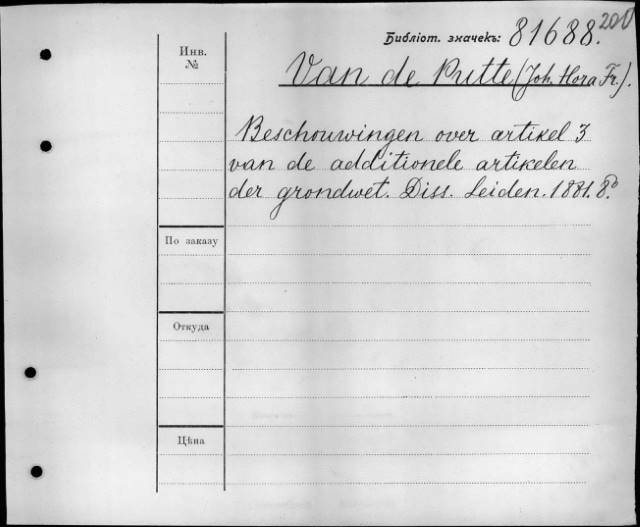 Библіот. значекъ: 81688. 201
Инв.
№
Van de Putte (Joh. Hora Fr.).
Beschouwingen over artikel 3
van de additionele artikelen
der grondwet. Diss. Leiden. 1881. 8º.
По заказу
Откуда
Цѣна